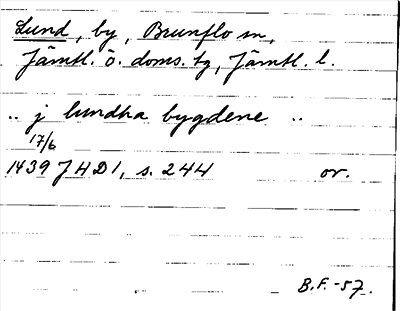 Lund, by, Brunflo sn,
Jämtl. ö. doms. tg, Jämtl. l.
.. j lundha bygdene ..
17/6
1439 JHD1, s. 244 or.
B.F.-57.